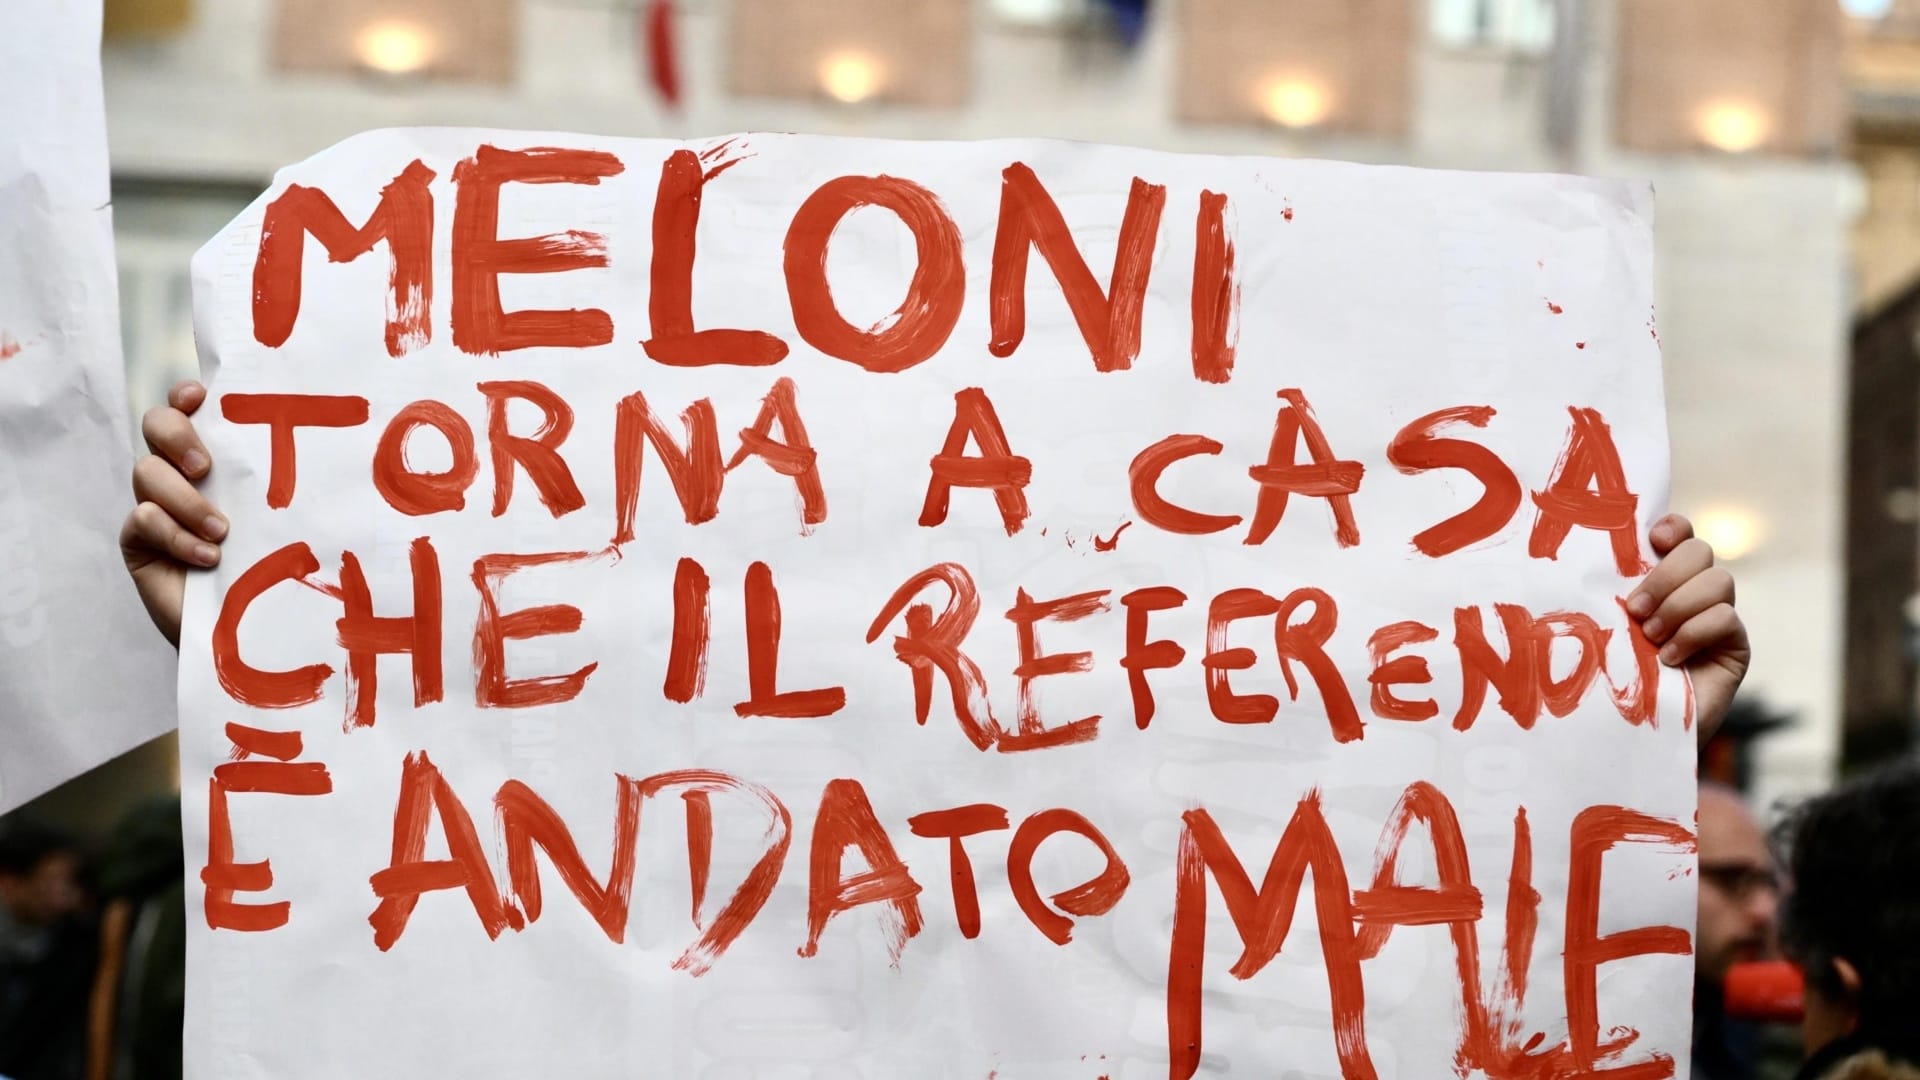 MELONI
TORNA A CASA
CHE IL REFERENDU
È ANDATO MALE